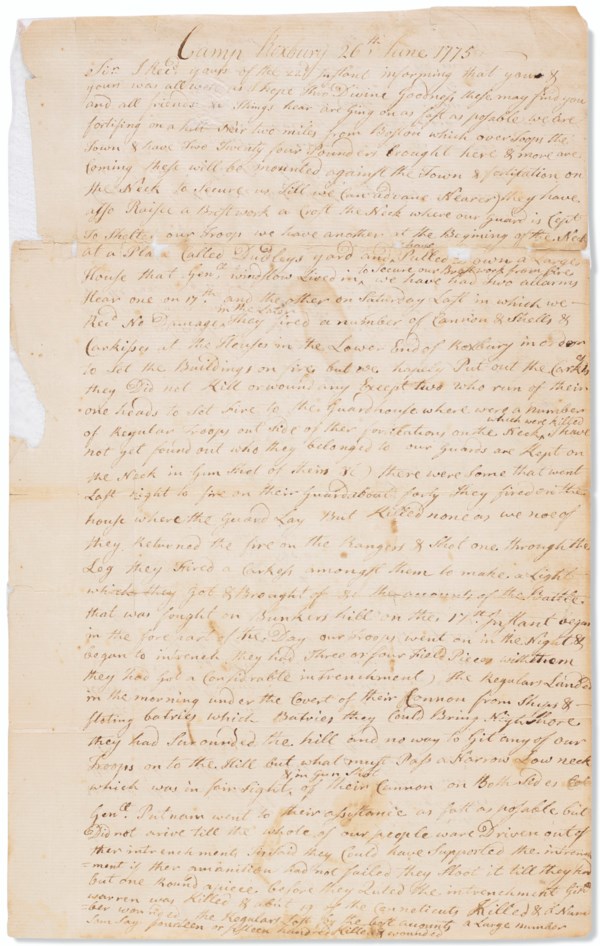 Camp Roxbury 26th June 1775
Sir I Recd yours of the 22d Instant informing that you &
yours was all well as I hope thro Divine Goodness these may find you
and all friends things hear are Ging on as fast as posable we are
fortifing on a hill Near two miles from Boston which over loops the
Town & have Two Twenty four Pounders brought here & more are
Coming these will be mounted against the Town & fortifation on
the Neck to Secure us till we Can advane Nearer they have
also Raise a Brestwork a Crost the Neck where our guard is Cept
To Shelter our Troops we have another at the Begining of the Neck
at a Place Called Dudleys yard and Pulled down a Large
House that Genll winslow Lived in to Secure our Brestwork from fire we have had two allarms
hear one on 17th and the other on Saturday Last in which we
Recd No Damage in the Later they fired a number of Cannon & Shells &
Carkisses at the Houses in the Lower End of Roxbury in order
to Set the Buildings on fire but we hapely Put out the Carkises
they Did not Kill or wound any Except two who run of their
one heads to Set fire to the Guardhouse where were a number
of Regular Troops out side of ther fortifations on the Neck which were Killed I have
not yet found out who they belonged to our Guards are Kept on
the Neck in Gun Shot of theirs &c there were Some that went
Last Night to fire on their Guards about forty they fired on the
house where the Guard Lay But Killed none as we noe of
they Returned the fire on the Rangers & Shot one through the
Leg they Fired a Carkess amongst them to make a Light
which they Got & Brought of &c the accounts of the Battle
that was fought on Bunkers hill on the 17th Instant began
in the fore part of the Day our Troops went on in the Night &
began to intrench they had Three or four Field Pieces with them
they had Got a Considrable intrenchment the Regulars Landed
in the morning under the Covert of their Cannon from Ships &
floting batries which Batries they Could Bring Nigh Shore
they had Surounded the hill and no way to Git any of our
Troops on to the Hill but what must Pass a Narrow Low neck
which was in fair Sight & in Gun Shot of their Cannon on Both Sides
Genll Putnam went to their assistance as fast as posable but
Did not arive till the whole of our people ware Driven out of
ther intrenchments they Could have Supported the intrench
ment if ther amanition had not failed they
but one Round a piece before they the intrenchment Genll
warren was Killed & about 19 of the Conneticuts Killed & a Num
ber wounded the Regulars Lost by the best amounts a Large number
Sum Say fourteen or fifteen hundred Killed & wounded